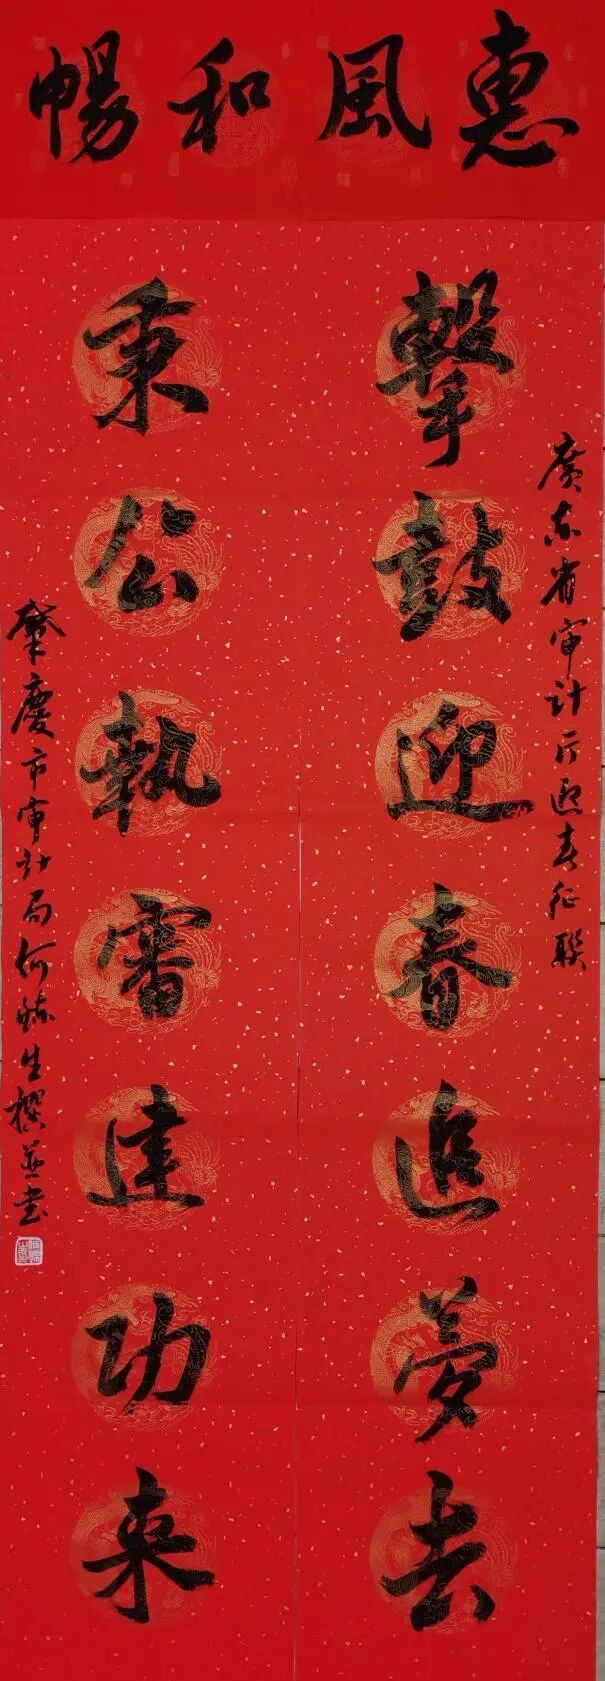 惠風和暢
擊鼓迎春追夢去
廣东省审计厅迎春征联
秉公執審建功来
肇慶市审计局何生撰並书